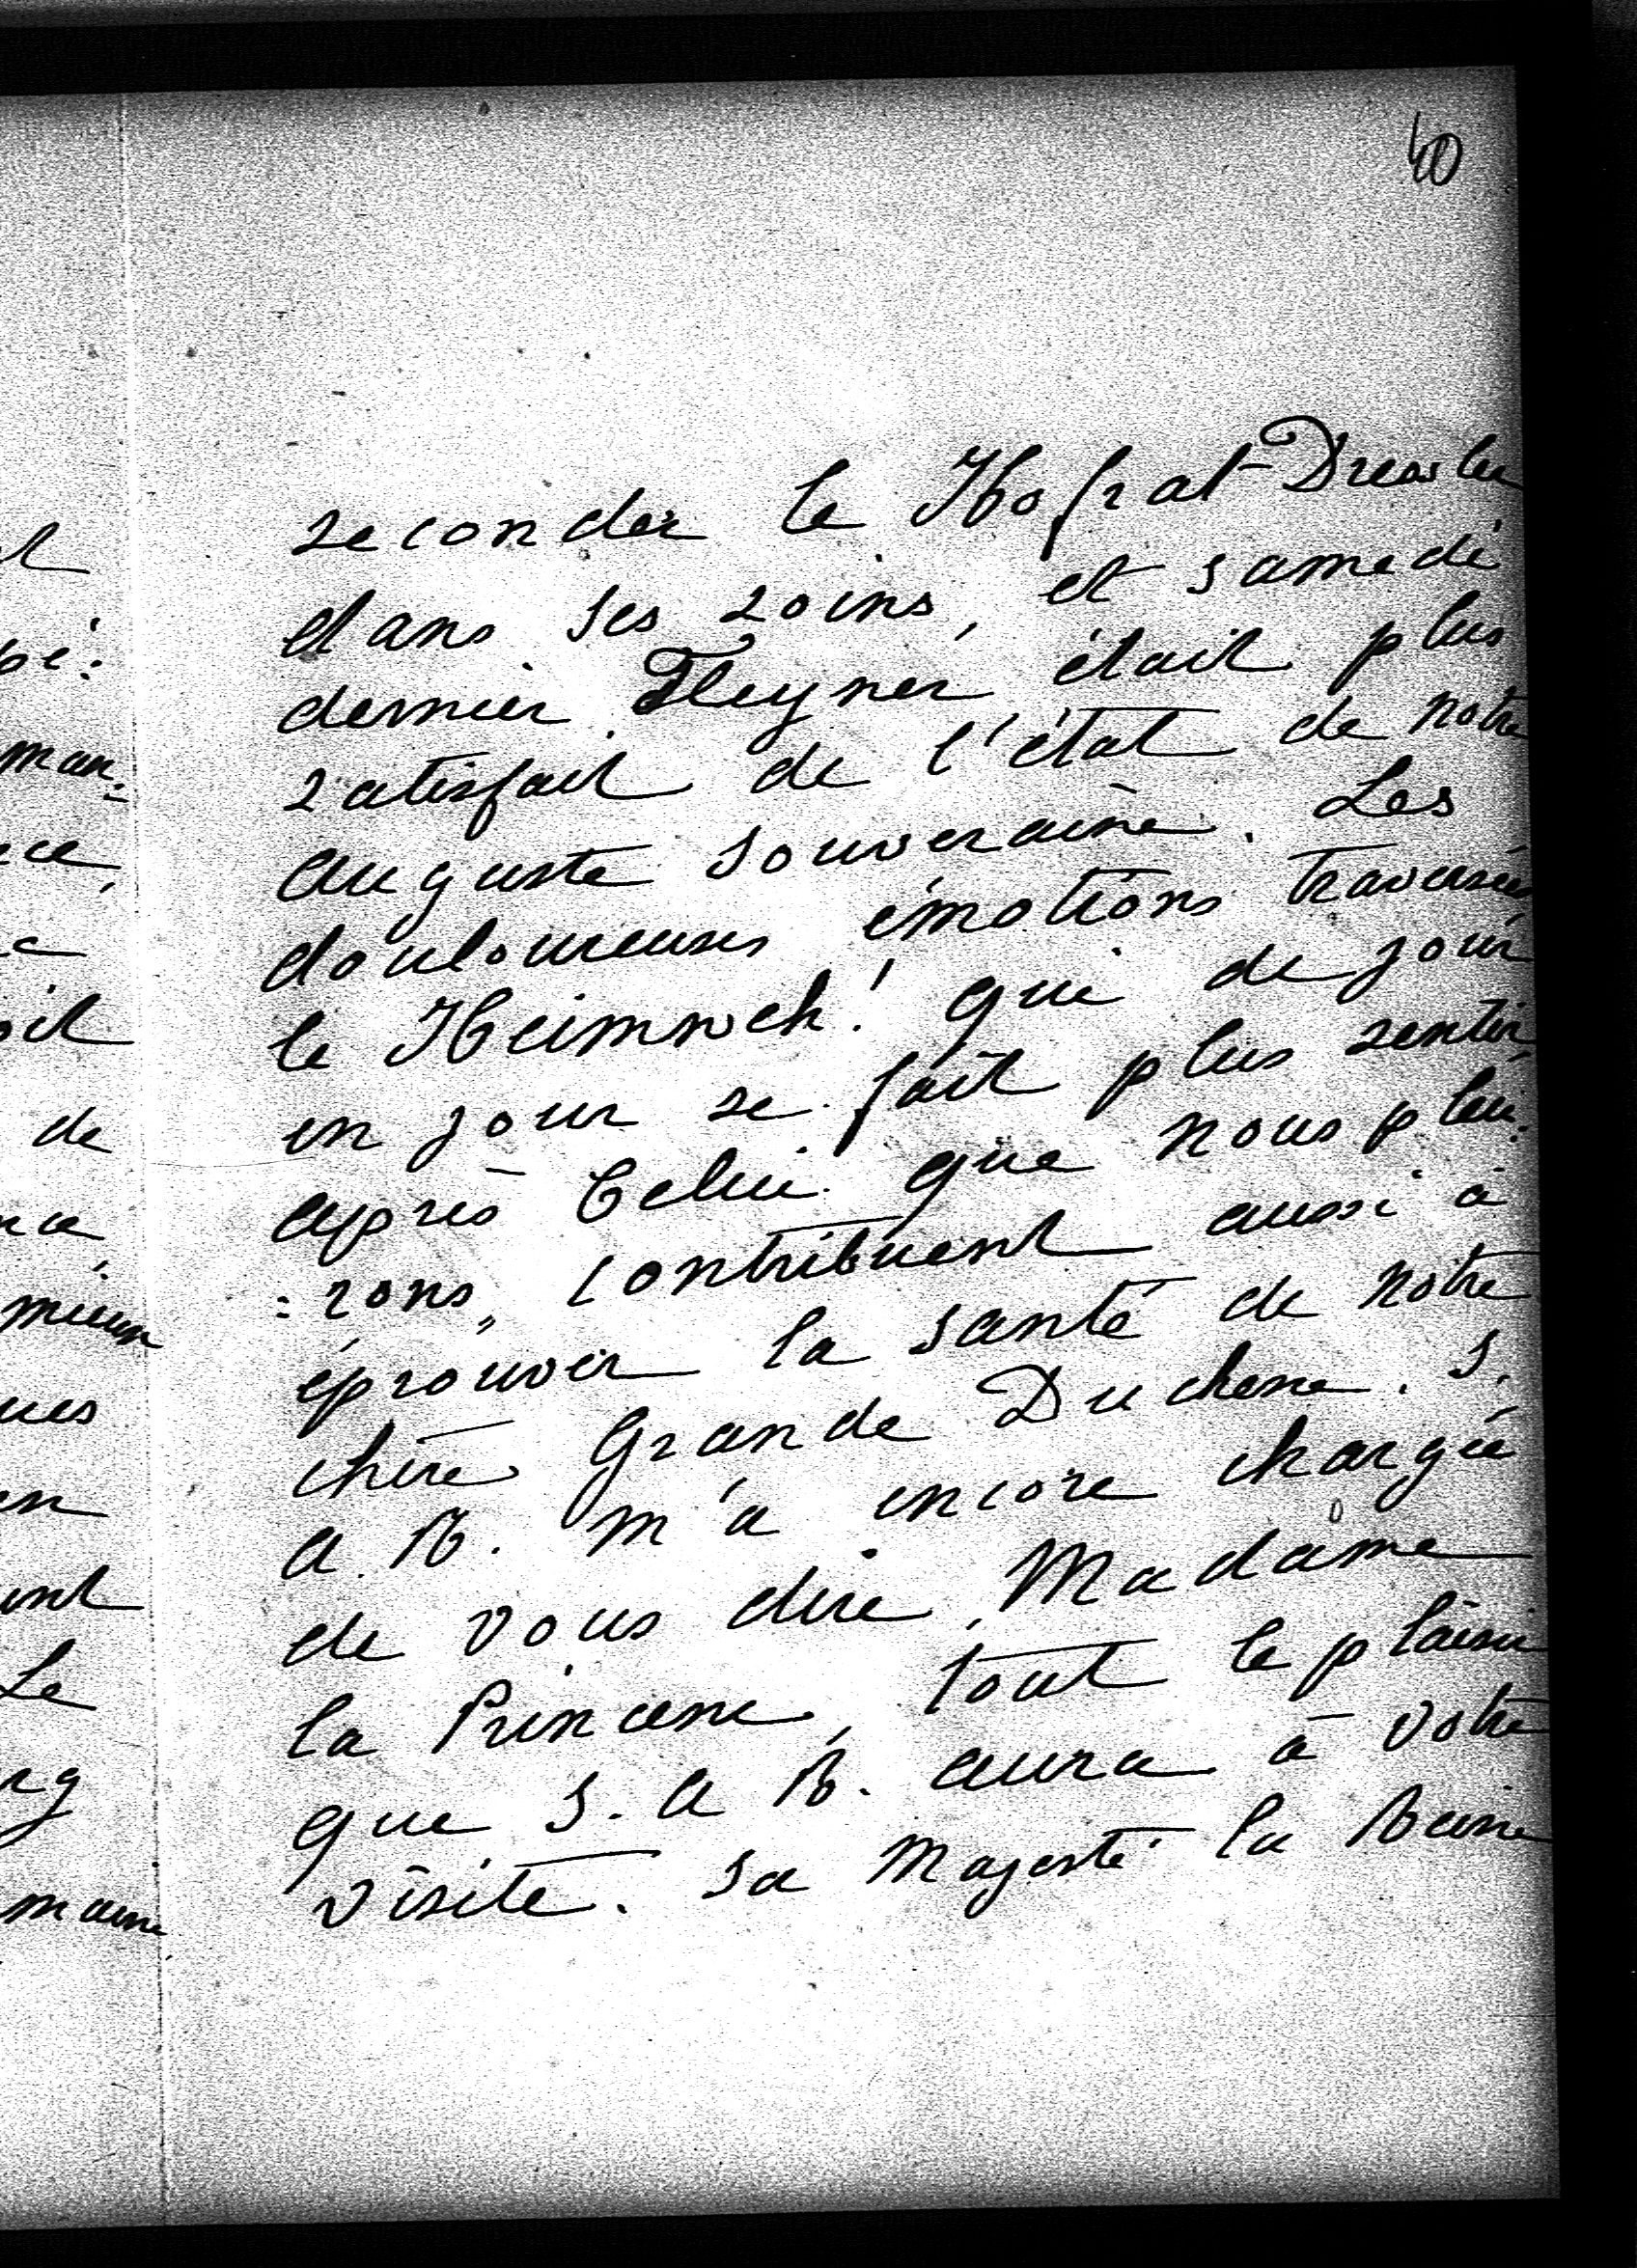 40
seconder le Hofrat Dressler
dans ses soins, et samedi
dernier Fleyner était plus
satisfait de l'état de notre
auguste souveraine. Les
douloureuses émotions traversées
le Heimweh! qui de jour
en jour se fait plus sentir
après Celui que nous pleu:
:rons, contribuent aussi à
éprouver la santé de notre
chère Grande Duchesse. S.
A. R. m'a encore chargée
de vous dire, Madame
la Princesse, tout le plaisir
que S. A R. aura à votre
visite. Sa Majesté la Reine
pé:
man:
de
mieux
ues
en
Le